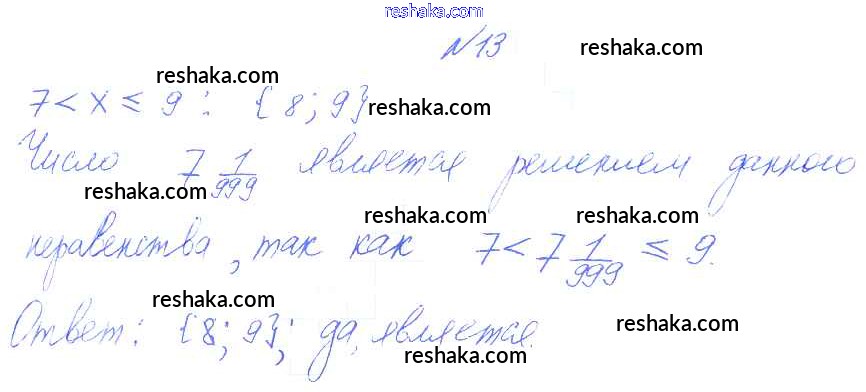 reshaka.com
№13
reshaka.com
reshaka.com
7 < x ≤ 9 : {8; 9}
reshaka.com
Число 7 1/999 является решением данного
reshaka.com
reshaka.com
неравенства, так как 7 < 7 1/999 ≤ 9.
reshaka.com
reshaka.com
Ответ: {8; 9}; да, является.
reshaka.com
reshaka.com